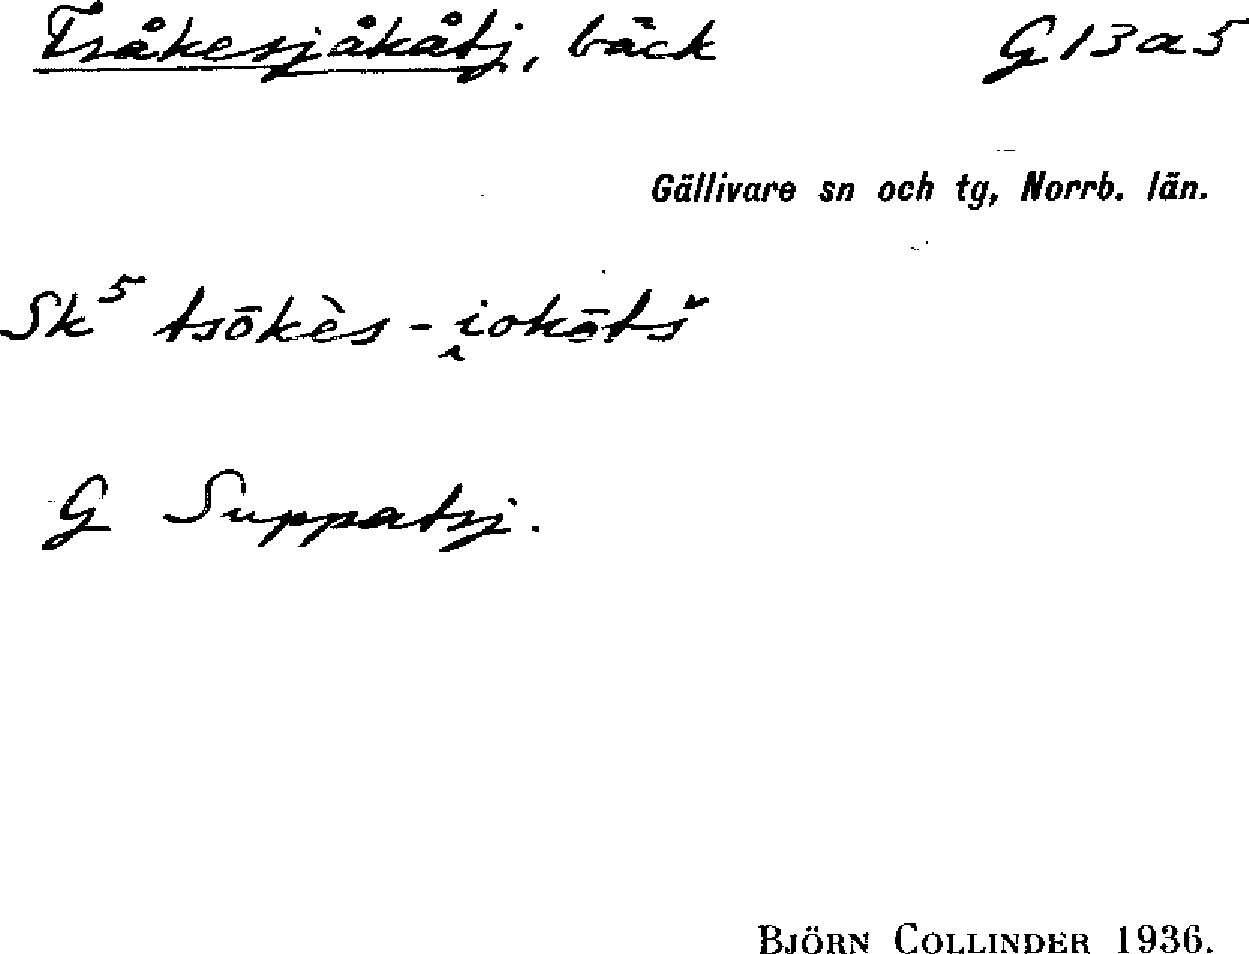 Tsåkesjåkåtj, bäck G13a5
Gällivare sn och tg, Norrb. län.
Sk⁵ tsōkès-i̯okåtš
G Suppatsj.
BJÖRN COLLINDER 1936.